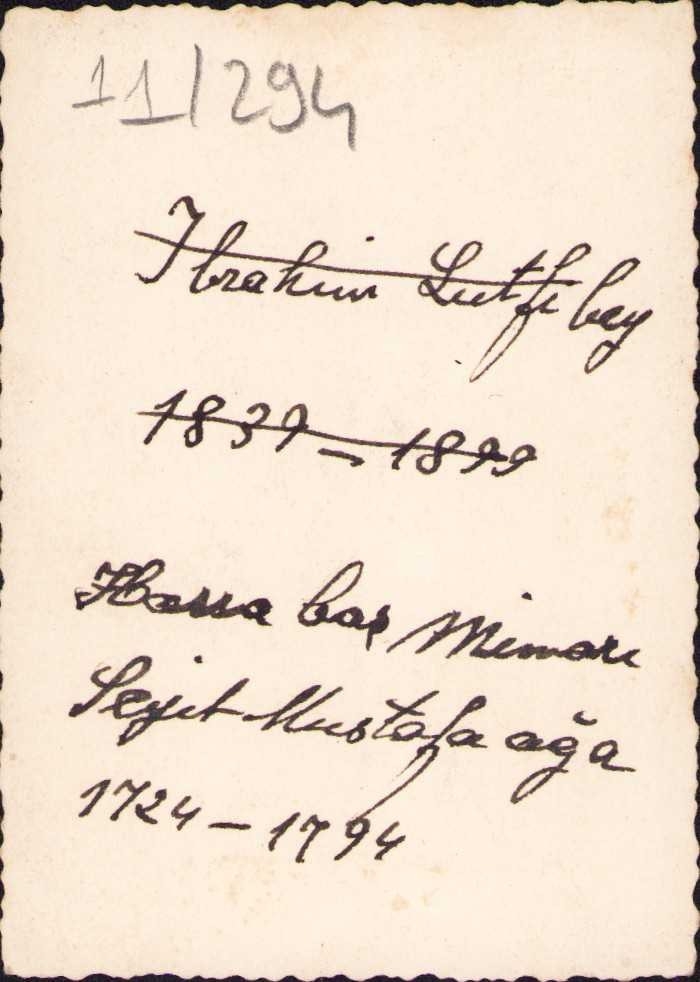 11/294
Ibrahim Lutfi bey
1839 – 1899
Hassa baş Mimarı
Seyit Mustafa ağa
1724 – 1794